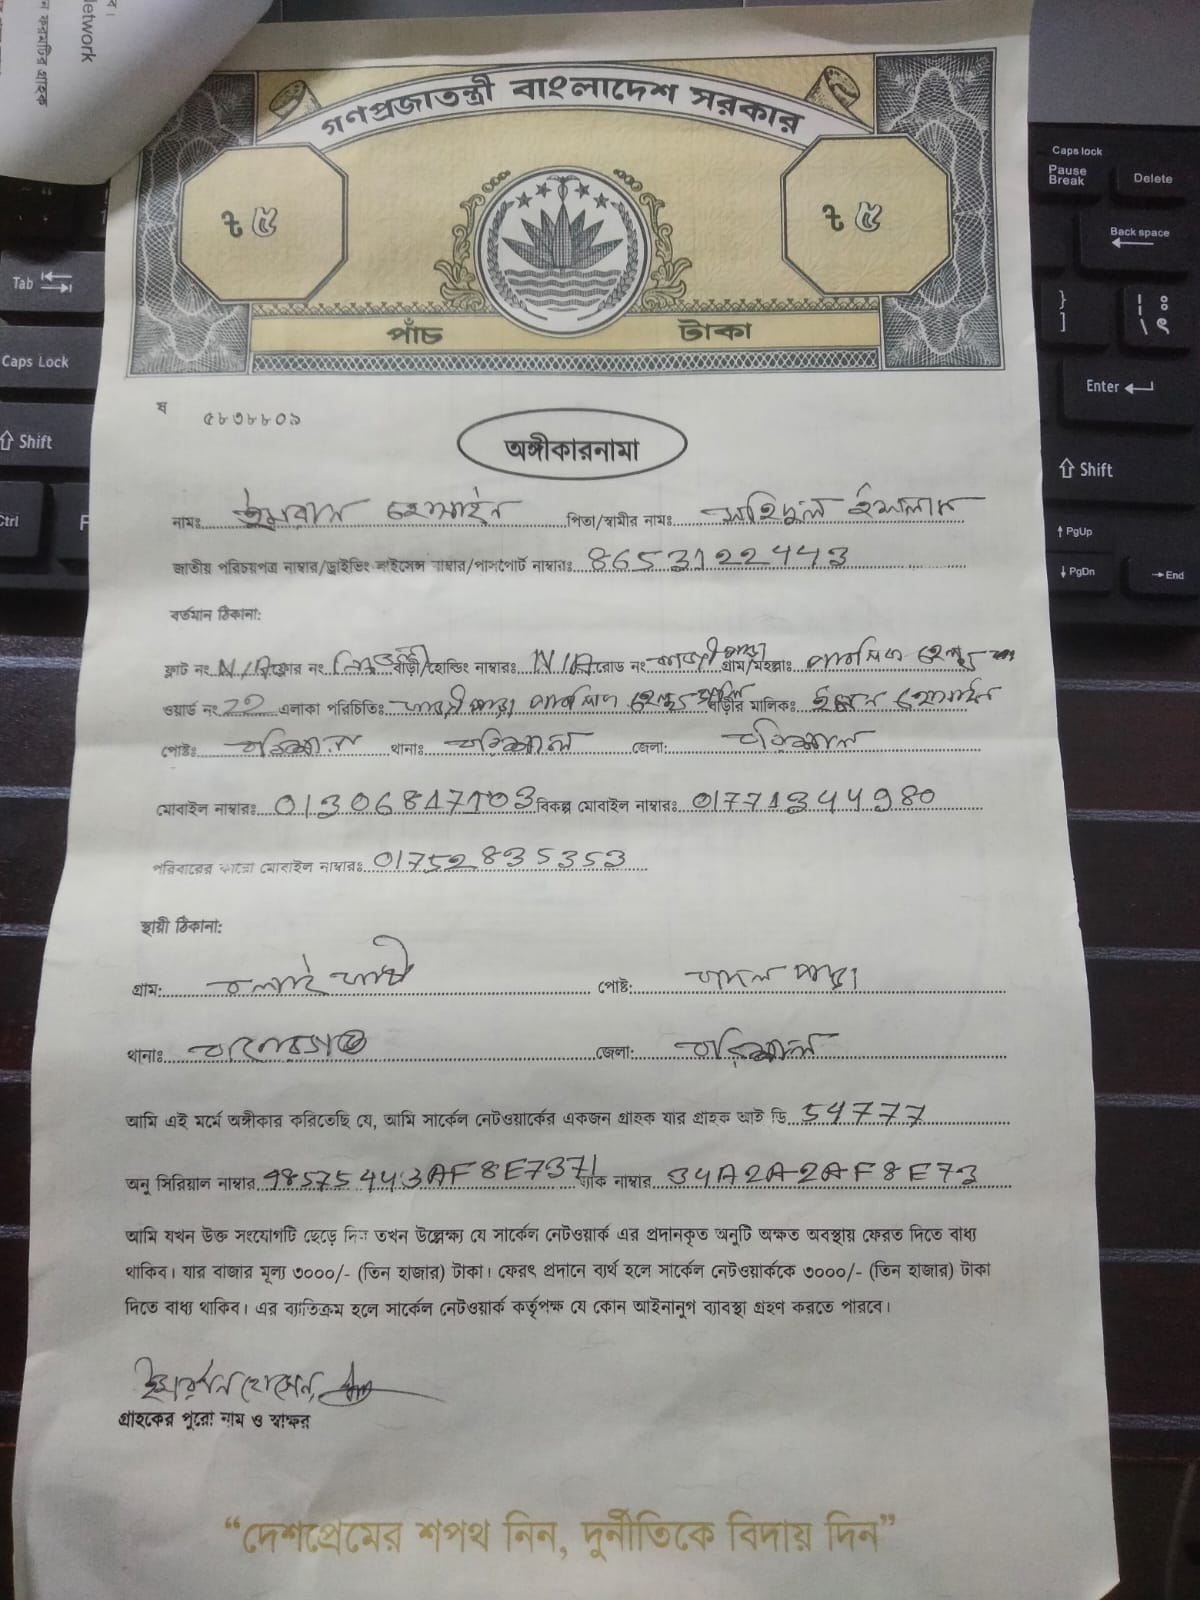 Network
ন ফরমটির গ্রাহক
গণপ্রজাতন্ত্রী বাংলাদেশ সরকার
৳ ৫ ৳ ৫
পাঁচ টাকা
ষ ৫৮৩৮৮০৯
অঙ্গীকারনামা
নামঃ ইমরান হোসাইন পিতা/স্বামীর নামঃ সহিদুল ইসলাম
জাতীয় পরিচয়পত্র নাম্বার/ড্রাইভিং লাইসেন্স নাম্বার/পাসপোর্ট নাম্বারঃ 8653122443
বর্তমান ঠিকানা:
ফ্লাট নং N/A ফ্লোর নং বাড়ী/হোল্ডিং নাম্বারঃ N/A রোড নং গ্রাম/মহল্লাঃ
ওয়ার্ড নং 22 এলাকা পরিচিতিঃ বাড়ীর মালিকঃ হোসাইন
পোষ্টঃ বরিশাল থানাঃ বরিশাল জেলা: বরিশাল
মোবাইল নাম্বারঃ 01306847103 বিকল্প মোবাইল নাম্বারঃ 01771344980
পরিবারের কারো মোবাইল নাম্বারঃ 01752835353
স্থায়ী ঠিকানা:
গ্রাম: পোষ্ট: পাড়া
থানাঃ জেলা: বরিশাল
আমি এই মর্মে অঙ্গীকার করিতেছি যে, আমি সার্কেল নেটওয়ার্কের একজন গ্রাহক যার গ্রাহক আই ডি 54777
অনু সিরিয়াল নাম্বার 48575443AF8E7371 ম্যাক নাম্বার 34A2A2AF8E73
আমি যখন উক্ত সংযোগটি ছেড়ে দিব তখন উল্লেক্ষ্য যে সার্কেল নেটওয়ার্ক এর প্রদানকৃত অনুটি অক্ষত অবস্থায় ফেরত দিতে বাধ্য
থাকিব। যার বাজার মূল্য ৩০০০/- (তিন হাজার) টাকা। ফেরৎ প্রদানে ব্যর্থ হলে সার্কেল নেটওয়ার্ককে ৩০০০/- (তিন হাজার) টাকা
দিতে বাধ্য থাকিব। এর ব্যাতিক্রম হলে সার্কেল নেটওয়ার্ক কর্তৃপক্ষ যে কোন আইনানুগ ব্যাবস্থা গ্রহণ করতে পারবে।
ইমরান হোসেন,
গ্রাহকের পুরো নাম ও স্বাক্ষর
“দেশপ্রেমের শপথ নিন, দুর্নীতিকে বিদায় দিন”
Tab
Caps Lock
Shift
Ctrl
F
Caps lock
Pause
Break
Delete
Back space
}
]
|
\
Enter
Shift
PgUp
PgDn
End